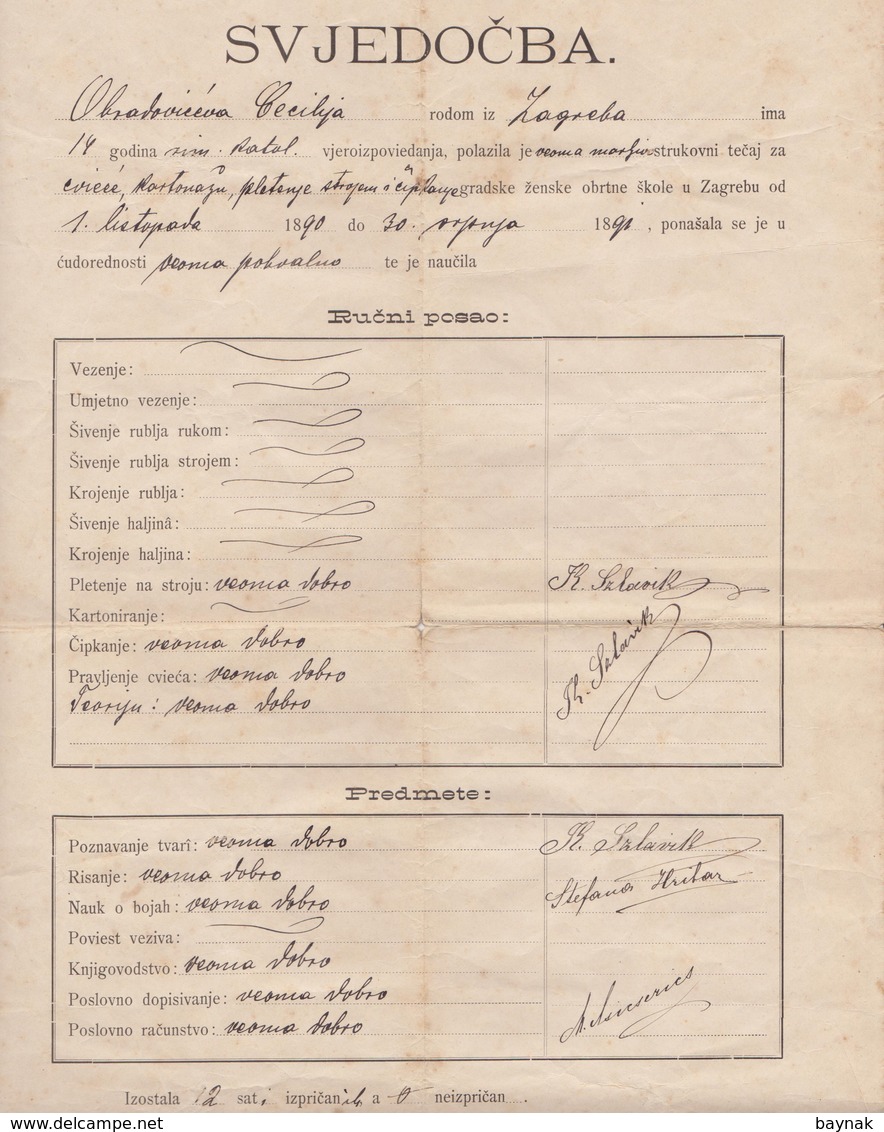 SVJEDOČBA.
Obradovićeva Cecilija rodom iz Zagreba ima
14 godina rim. katol. vjeroizpoviedanja, polazila je veoma marljivo strukovni tečaj za
cvieće, kartonažu, pletenje strojem i čipkanje gradske ženske obrtne škole u Zagrebu od
1. listopada 1890 do 30. srpnja 1891, ponašala se je u
ćudorednosti veoma pohvalno te je naučila
Ručni posao:
Vezenje:
Umjetno vezenje:
Šivenje rublja rukom:
Šivenje rublja strojem:
Krojenje rublja:
Šivenje haljinâ:
Krojenje haljina:
Pletenje na stroju: veoma dobro K. Szlavik
Kartoniranje:
Čipkanje: veoma dobro
Pravljenje cvieća: veoma dobro K. Szlavik
Teoriju: veoma dobro
Predmete:
Poznavanje tvarî: veoma dobro K. Szlavik
Risanje: veoma dobro Štefana Hribar
Nauk o bojah: veoma dobro
Poviest veziva:
Knjigovodstvo: veoma dobro
Poslovno dopisivanje: veoma dobro
Poslovno računstvo: veoma dobro
Izostala 12 sati izpričanih a 0 neizpričan .
baynak